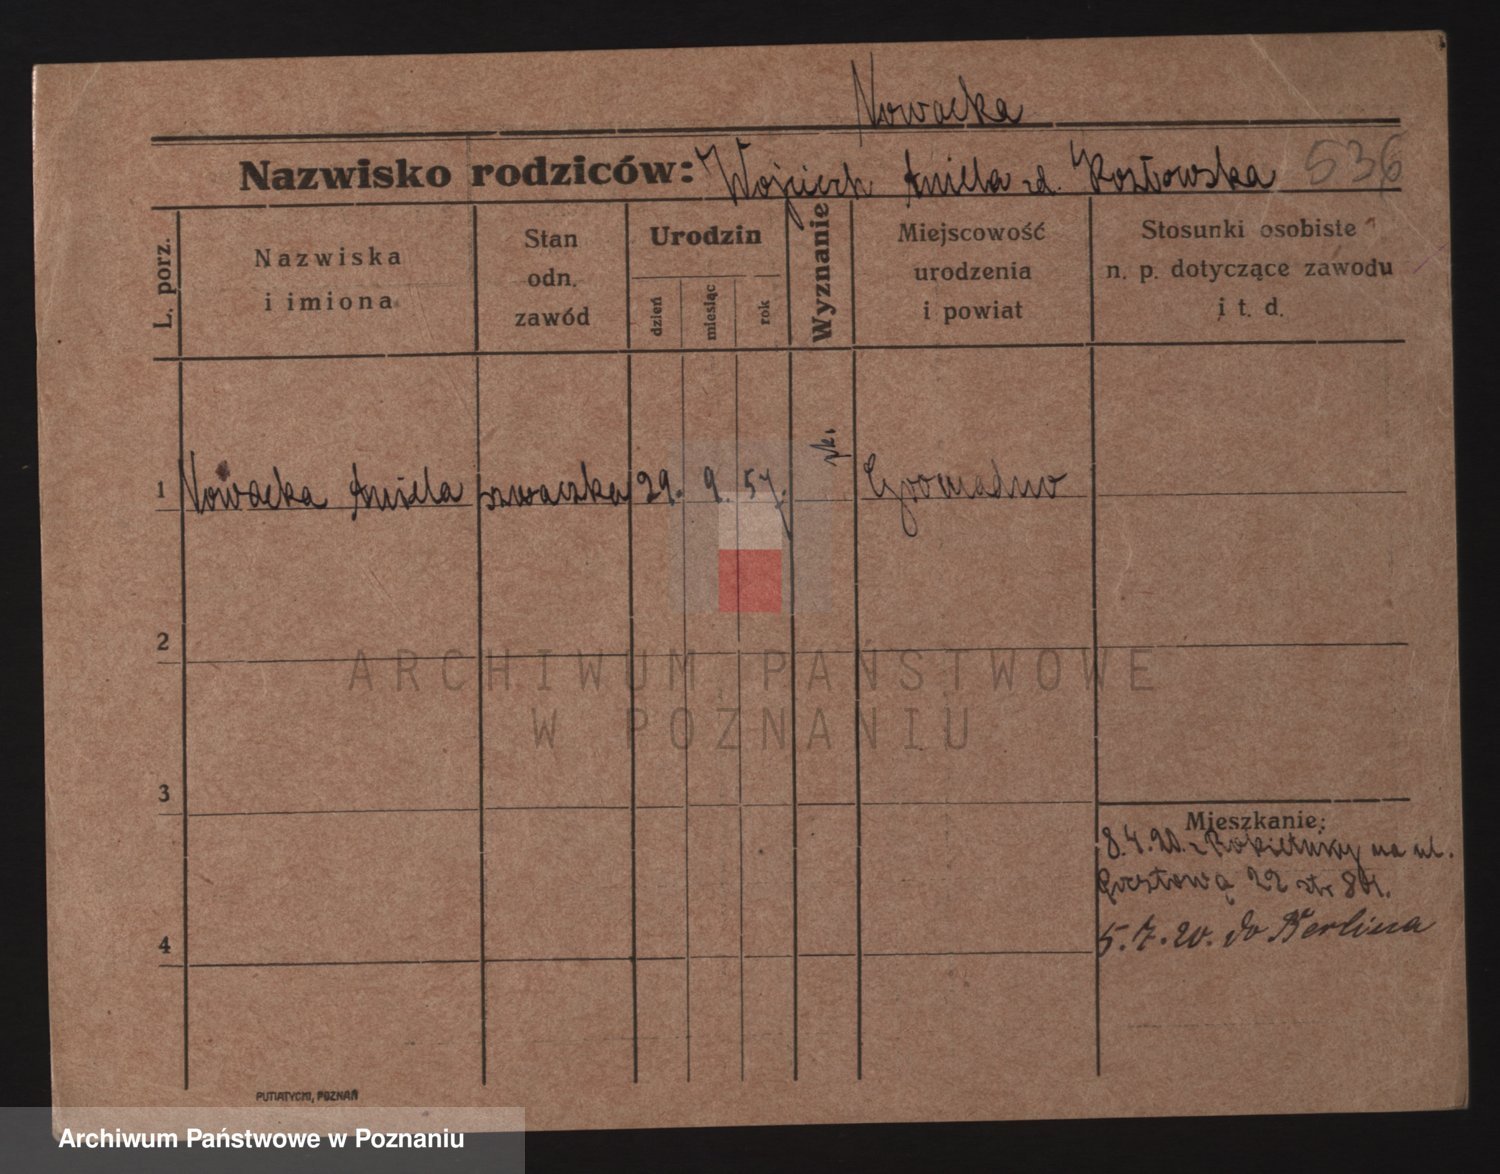 Nowacka
Nazwisko rodziców: Wojciech Aniela zd. Kozłowska 536
L. porz.
Nazwiska
i imiona
Stan
odn.
zawód
Urodzin
dzień
miesiąc
rok
Wyznanie
Miejscowość
urodzenia
i powiat
Stosunki osobiste
n. p. dotyczące zawodu
i t. d.
1 Nowacka Aniela szwaczka 29. 9. 57. rk. Gromadno
2
ARCHIWUM PAŃSTWOWE
W POZNANIU
3
Mieszkanie:
8.4.20. z na ul.
22 ptr
4
5.7.20. do Berlina
PUTIATYCKI, POZNAŃ
Archiwum Państwowe w Poznaniu